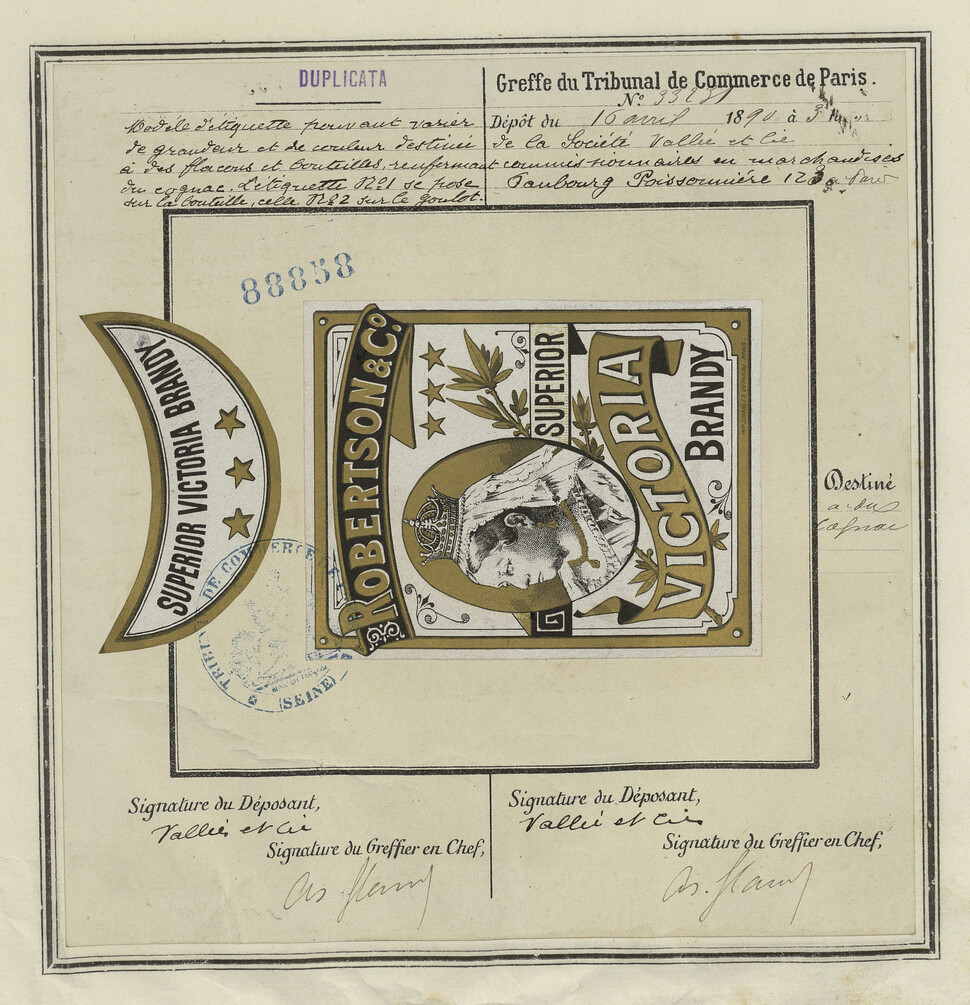 DUPLICATA
Modèle d'étiquette pouvant varier
de grandeur et de couleur destinée
à des flacons et bouteilles, renfermant
du cognac. L'étiquette N°1 se pose
sur la bouteille, celle N°2 sur le goulot.
Greffe du Tribunal de Commerce de Paris.
N°
Dépôt du 16 avril 1890 à 3
de la Société Vallié et Cie
commissionnaires en marchandises
Faubourg Poissonnière à Paris
88858
SUPERIOR VICTORIA BRANDY
ROBERTSON & Co
SUPERIOR
VICTORIA
BRANDY
TRIBUNAL DE COMMERCE DE
(SEINE)
Destiné
à du
Cognac
Signature du Déposant,
Vallié et Cie
Signature du Greffier en Chef,
Signature du Déposant,
Vallié et Cie
Signature du Greffier en Chef,